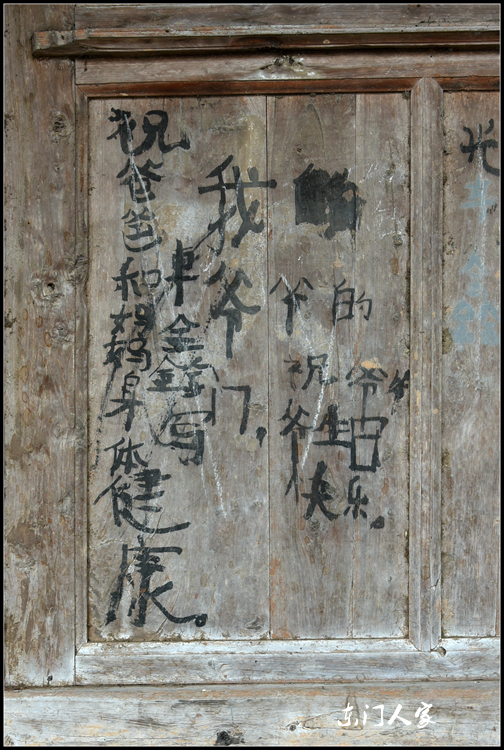 祝爸爸和妈妈身体健康。
车全
写
我爷门，
爷的
祝爷爷
爷生日
快乐。
光
东门人家